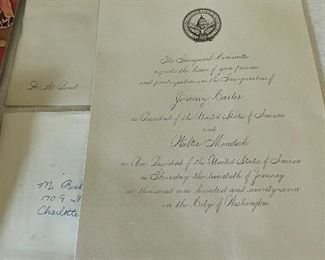 The Inaugural Committee
requests the honor of your presence
and participation in the Inauguration of
Jimmy Carter
as President of the United States of America
and
Walter Mondale
as Vice President of the United States of America
on Thursday the twentieth of January
one thousand nine hundred and seventy-seven
in the City of Washington
1709
Charlotte